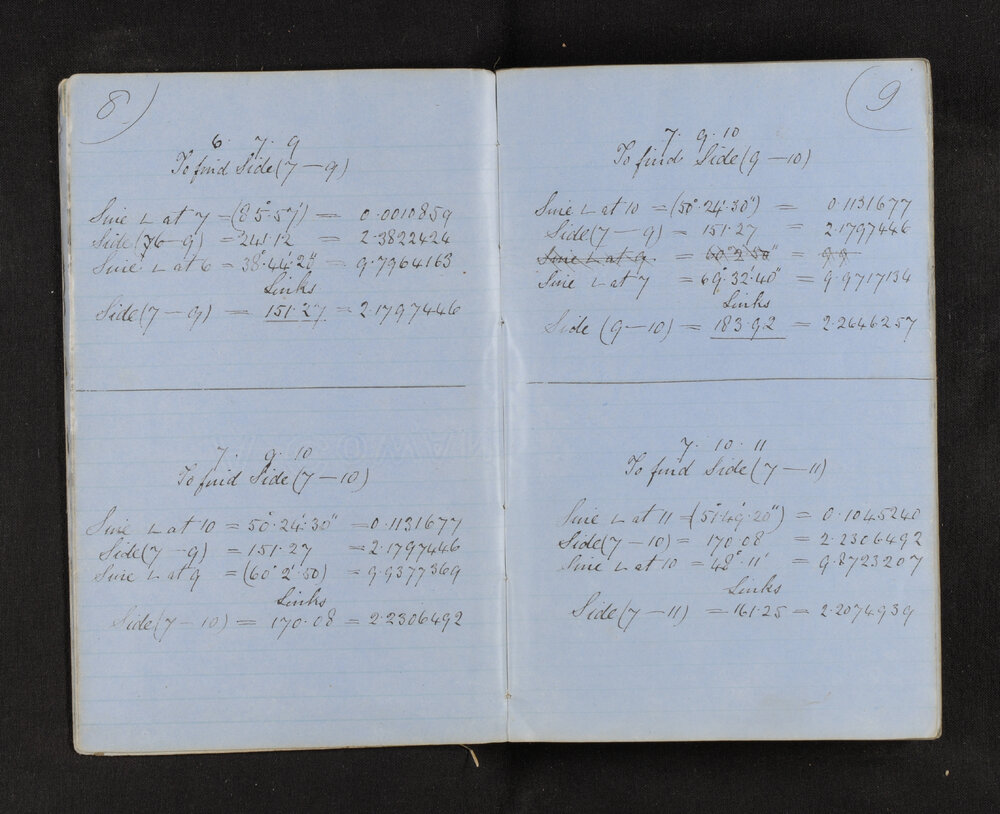 8
6. 7. 9
To find Side (7 — 9)
Sine ∟ at 7 = (85°.57') = 0.0010859
Side (6 — 9) = 241.12 = 2.3822424
Sine ∟ at 6 = 38°.44'.20" = 9.7964163
Links
Side (7 — 9) = 151.27 = 2.1797446
7. 9. 10
To find Side (7 — 10)
Sine ∟ at 10 = 50°.24'.30" = 0.1131677
Side (7 — 9) = 151.27 = 2.1797446
Sine ∟ at 9 = (60°.2'.50) = 9.9377369
Links
Side (7 — 10) = 170.08 = 2.2306492
9
7. 9. 10
To find Side (9 — 10)
Sine ∟ at 10 = (50°.24'.30") = 0.1131677
Side (7 — 9) = 151.27 = 2.1797446
Sine ∟ at 9 = 60°.2'.50" = 9.9
Sine ∟ at 7 = 69°.32'.40" = 9.9717134
Links
Side (9 — 10) = 183.92 = 2.2646257
7. 10. 11
To find Side (7 — 11)
Sine ∟ at 11 = (51°.49'.20") = 0.1045240
Side (7 — 10) = 170.08 = 2.2306492
Sine ∟ at 10 = 48°.11' = 9.8723207
Links
Side (7 — 11) = 161.25 = 2.2074939